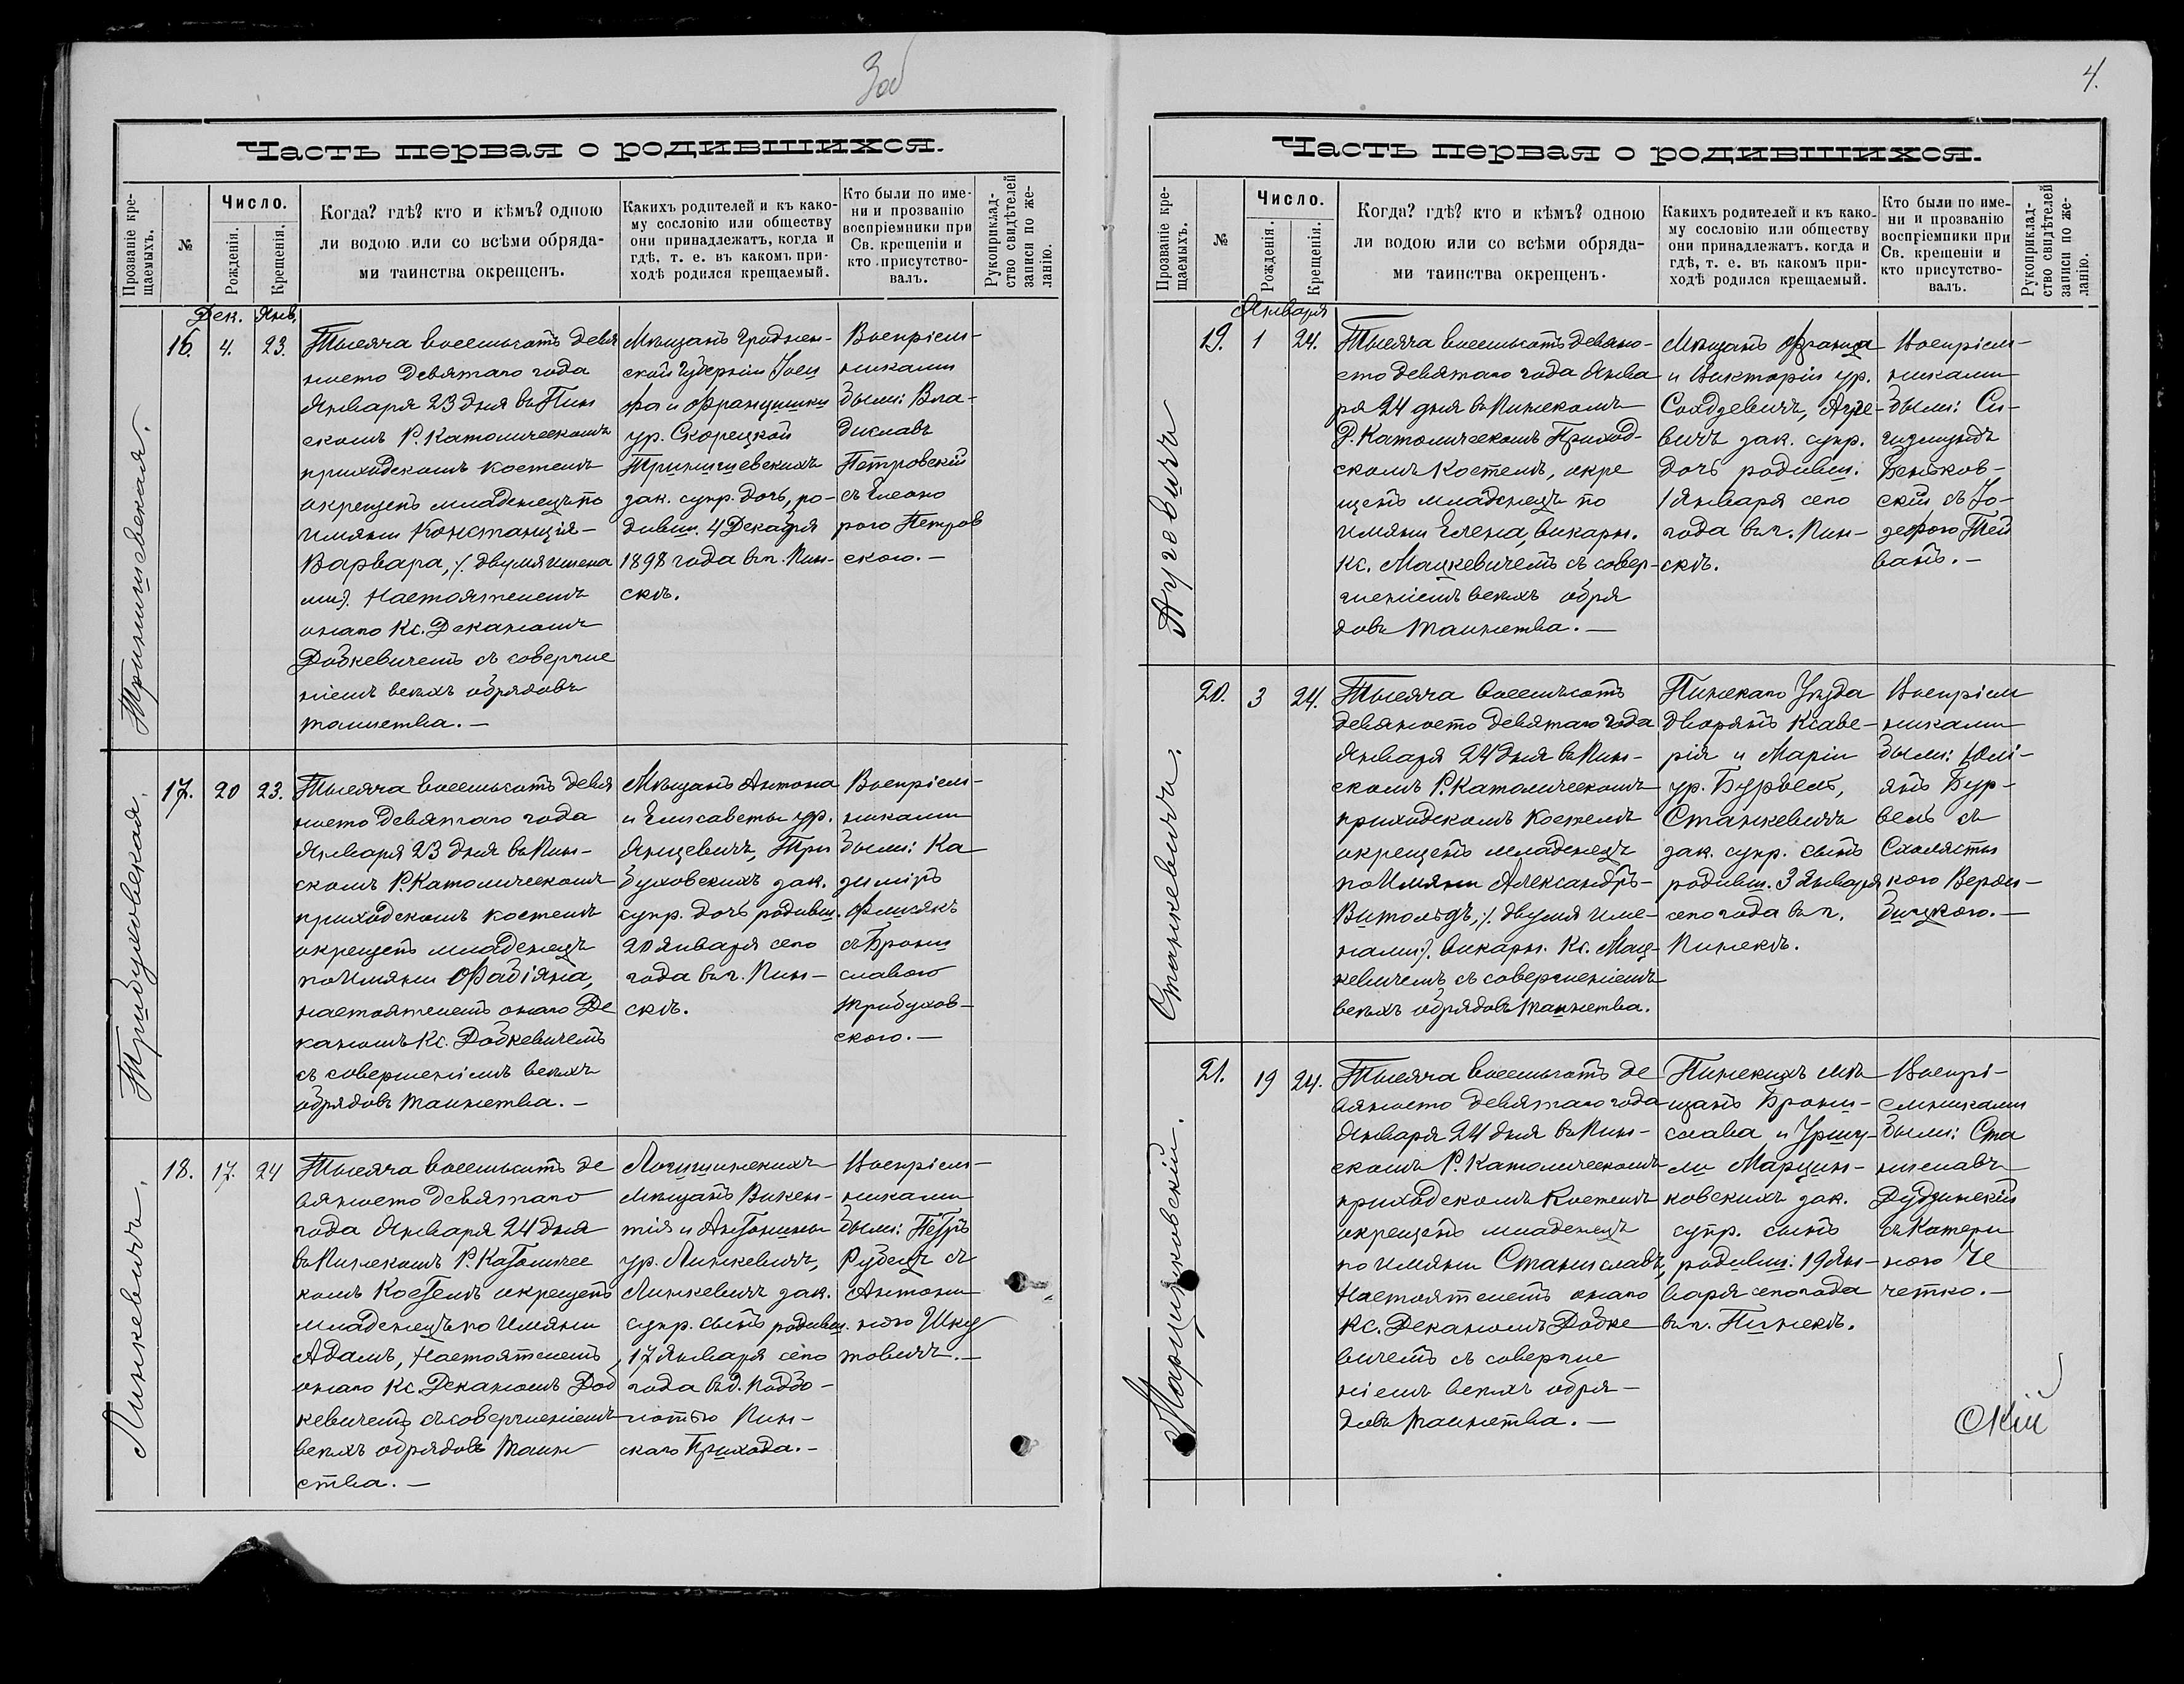 3об
Часть первая о родившихся.
Прозваніе кре-
щаемыхъ.
№
Число.
Рожденія.
Крещенія.
Когда? гдѣ? кто и кѣмъ? одною
ли водою или со всѣми обряда-
ми таинства окрещенъ.
Какихъ родителей и къ како-
му сословію или обществу
они принадлежатъ, когда и
гдѣ, т. е. въ какомъ при-
ходѣ родился крещаемый.
Кто были по име-
ни и прозванію
воспріемники при
Св. крещеніи и
кто присутство-
валъ.
Рукоприклад-
ство свидѣтелей
записи по же-
ланію.
Дек. Янв.
16. 4. 23.
Тысяча восемьсотъ девя
ностo девятаго года
Января 23 дня въ Пин
скомъ Р. Католическомъ
приходскомъ костелѣ
окрещенъ младенецъ по
имяни Констанція-
Варвара, /. двумя имена
ми). Настоятелемъ
онаго Кс. Деканомъ
Добкевичемъ съ соверше
ніемъ всѣхъ обрядовъ
таинства.-
Мѣщанъ Гроднен-
ской Губерніи Іоси
фа и Францишки
ур. Скорецкой
зак. супр. дочь, ро-
дивш. 4 Декабря
1898 года въ г. Пин-
скѣ.
Воспріем-
никами
были: Вла-
диславъ
Петровскій
съ Елеоно
рою Петров
скою.-
17. 20 23.
Трибуховская.
Тысяча восемьсотъ девя
ностo девятаго года
Января 23 дня въ Пин-
скомъ Р. Католическомъ
приходскомъ костелѣ
окрещенъ младенецъ
по имяни Фабіяна,
настоятелемъ онаго Де
каномъ Кс. Добкевичемъ
съ совершеніемъ всѣхъ
обрядовъ таинства.-
Мѣщанъ Антона
и Елисаветы ур.
Янцевичъ, Три
буховскихъ зак.
супр. дочь родивш.
20 января сего
года въ г. Пин-
скѣ.
Воспріем-
никами
были: Ка
зиміръ
Флисякъ
съ Брони
славою
Трибухов-
скою.-
18. 17. 24
Линкевичъ.
Тысяча восемьсотъ де
вяносто девятаго
года Января 24 дня
въ Пинскомъ Р. Католичес
комъ Костелѣ окрещенъ
младенецъ по имяни
Адамъ, Настоятелемъ
онаго Кс. Деканомъ Доб
кевичемъ съ совершеніемъ
всѣхъ обрядовъ таин
ства.-
Логишинскихъ
Мѣщанъ Викен-
тія и Антонины
ур. Линкевичъ,
Линкевичъ зак.
супр. сынъ родивш.
17 Января сего
года въ д. Поддо-
Пин-
скаго Прихода.-
Воспріем-
никами
были: Петръ
Рубецъ съ
Антони
ною Шку
товичъ.-
4.
Часть первая о родившихся.
Прозваніе кре-
щаемыхъ.
№
Число.
Рожденія.
Крещенія.
Когда? гдѣ? кто и кѣмъ? одною
ли водою или со всѣми обряда-
ми таинства окрещенъ.
Какихъ родителей и къ како-
му сословію или обществу
они принадлежатъ, когда и
гдѣ, т. е. въ какомъ при-
ходѣ родился крещаемый.
Кто были по име-
ни и прозванію
воспріемники при
Св. крещеніи и
кто присутство-
валъ.
Рукоприклад-
ство свидѣтелей
записи по же-
ланію.
Января
19. 1 24.
Тысяча восемьсотъ девяно-
сто девятаго года Янва
ря 24 дня въ Пинскомъ
Р. Католическомъ Приход-
скомъ Костелѣ, окре
щенъ младенецъ по
имяни Елена, викарн.
Кс. Мацкевичемъ съ совер-
шеніемъ всѣхъ обря
довъ таинства.-
Мѣщанъ Франца
и Викторіи ур.
вичъ зак. супр.
дочь родивш:
1 Января сего
года въ г. Пин-
скѣ.
Воспріем-
никами
были: Си-
гизмундъ
Беньков-
скій съ Іо-
зефою Тей
20. 3 24.
Станкевичъ.
Тысяча восемьсотъ
девяносто девятаго года
Января 24 дня въ Пин-
скомъ Р. Католическомъ
приходскомъ Костелѣ
окрещенъ младенецъ
по имяни Александръ-
Витольдъ, /. двумя име-
нами). викарн. Кс. Мац-
кевичемъ съ совершеніемъ
всѣхъ обрядовъ таинства.
Пинскаго Уѣзда
дворянъ Ксаве-
рія и Маріи
ур. Бурвель,
Станкевичъ
зак. супр. сынъ
родивш. 3 Января
сего года въ г.
Пинскѣ.
Воспріем
никами
были: Юлі-
янъ Бур-
вель съ
Схолясты
кою Верам-
бицкою.-
21. 19 24.
Марцинковскій.
Тысяча восемьсотъ де
вяносто девятаго года
Января 24 дня въ Пин-
скомъ Р. Католическомъ
приходскомъ Костелѣ
окрещенъ младенецъ
по имяни Станиславъ,
Настоятелемъ онаго
Кс. Деканомъ Добке
вичемъ съ соверше
ніемъ всѣхъ обря-
довъ таинства.-
Пинскихъ мѣ
щанъ Брони-
слава и Уршу-
ли Марцин-
ковскихъ зак.
супр. сынъ
родивш: 19 Ян-
варя сего года
въ г. Пинскѣ.
Воспрі-
емниками
были: Ста
ниславъ
Дудзинскій
съ Катери
ною Че
четко.-
скій